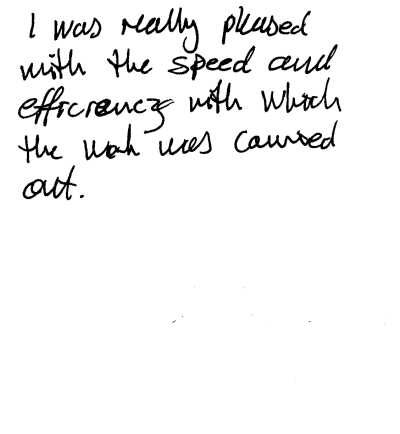 I was really pleased
with the speed and
efficiency with which
the work was carried
out.